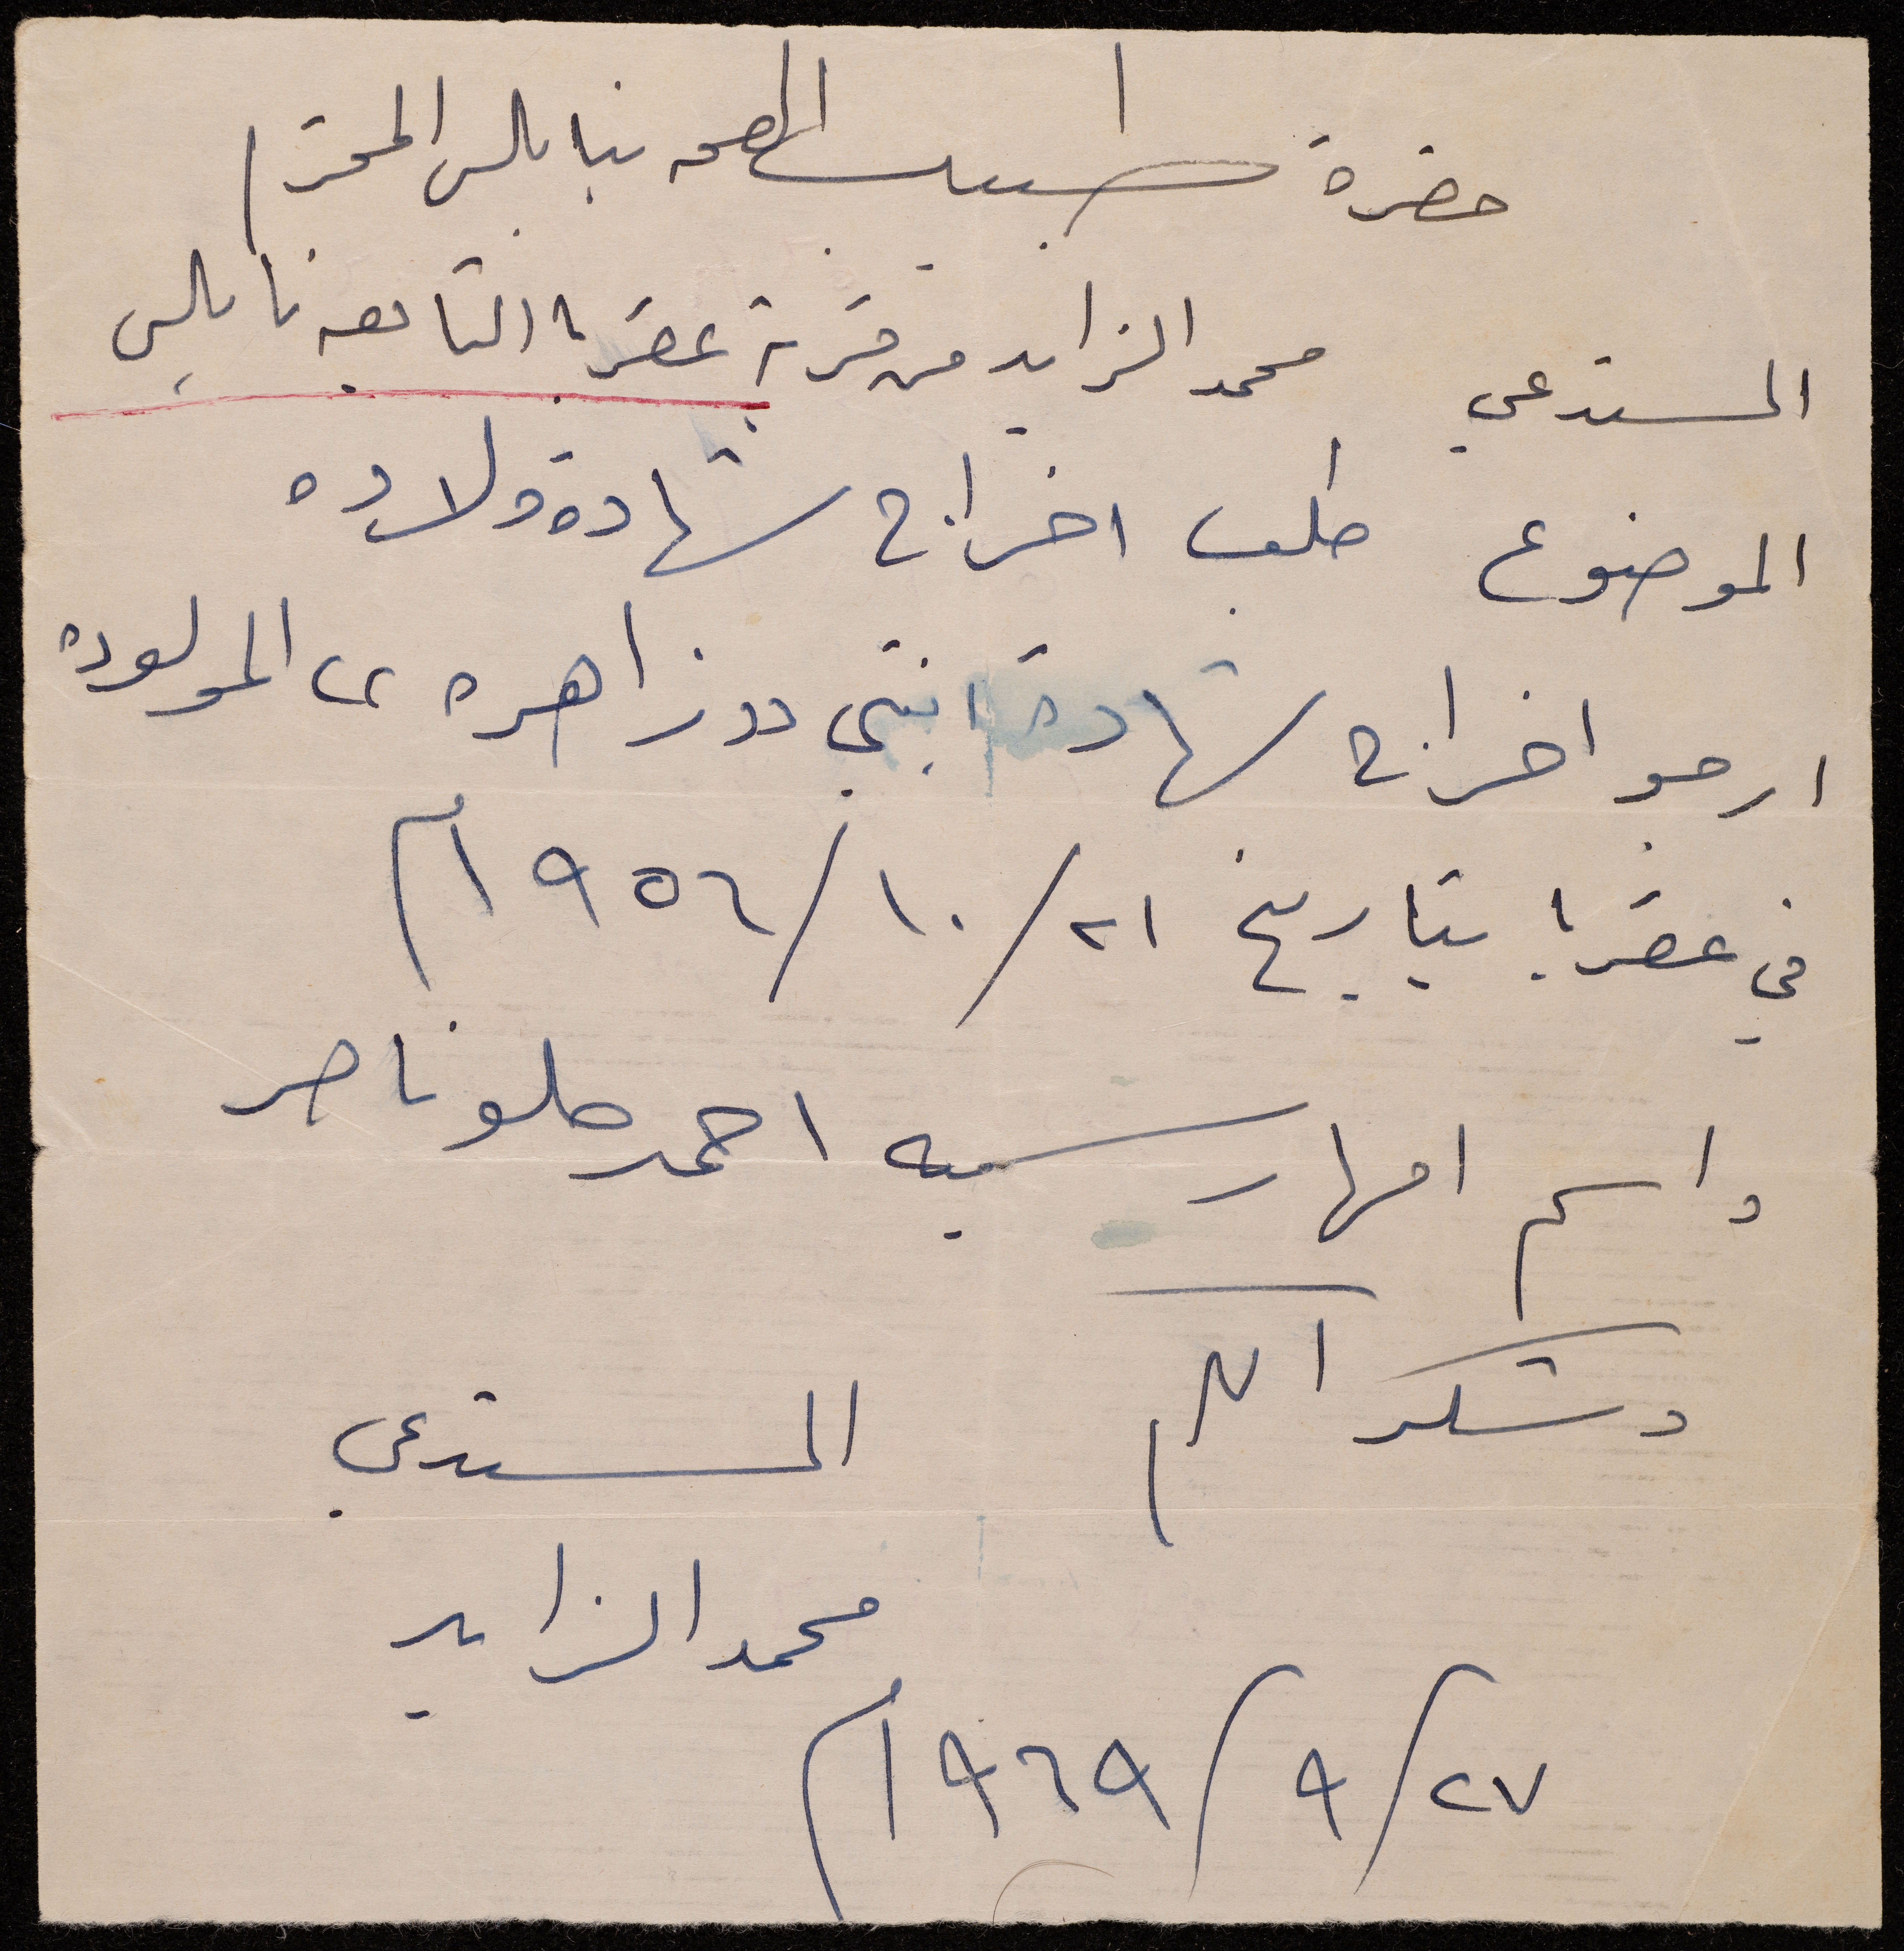 حضرة طبيب الصحه بنابلس المحترم
المستدعي محمد الزايد من قرية عقربا التابعه نابلس
الموضوع طلب اخراج شهادة ولاده
ارجو اخراج شهادة ابنتي "زاهره" المولوده
في عقربا بتاريخ ٢١/١٠/١٩٥٦م
واسم امها رسميه احمد صلو ناصر
وشكرا لكم
المستدعي
محمد الزايد
٢٧/٩/١٩٦٩م